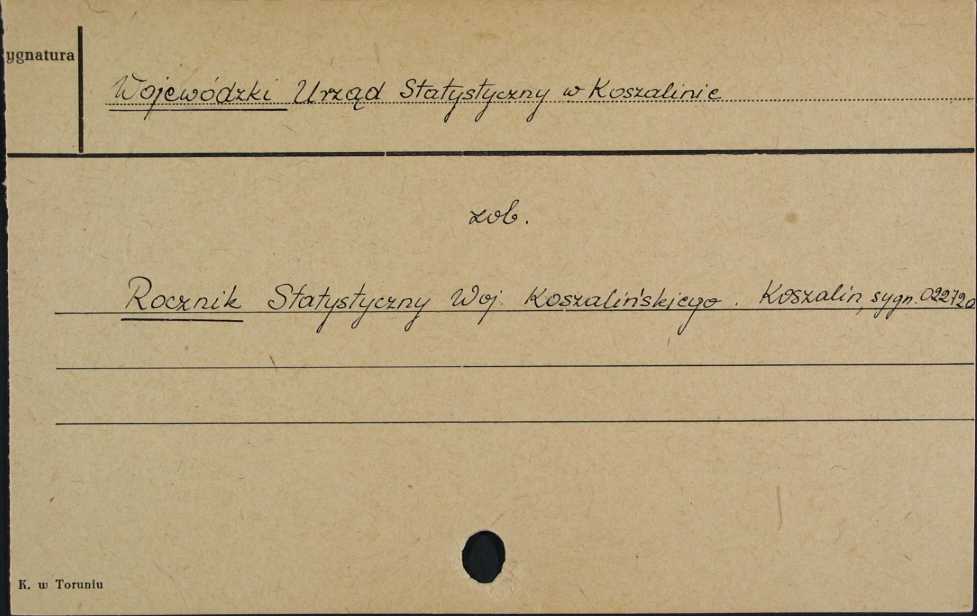 ygnatura
Wojewódzki Urząd Statystyczny w Koszalinie
zob.
Rocznik Statystyczny Woj. Koszalińskiego. Koszalin, sygn.
K. w Toruniu